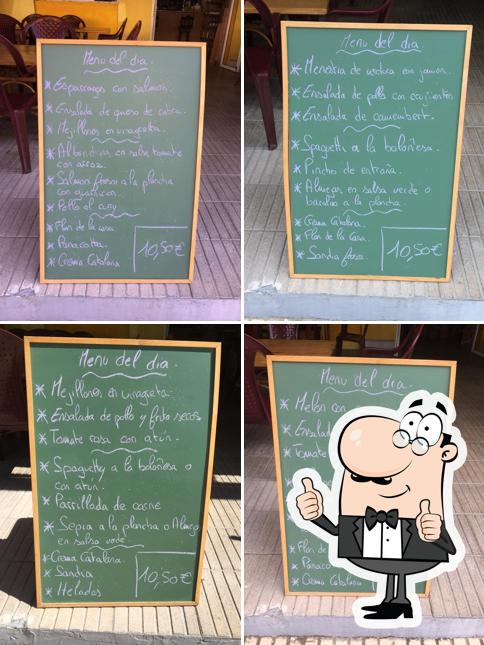 Menu del dia.
* Esparragos con salmon.
* Ensalada de queso de cabra.
* Mejillones en vinagreta.
* Albondigas en salsa tomate
con arroz.
* Salmon fresco a la plancha
con guarnicion.
* Pollo al curry
* Flan de la casa
* Panacotta.
* Crema Catalana
10,50€
Menu del dia.
* Menestra de verdura con jamon.
* Ensalada de pollo con crujientes
* Ensalada de camembert.
* Spaguetti a la boloñesa.
* Pincho de entraña.
* Almejas en salsa verde o
bacalao a la plancha.
* Crema Catalana.
* Flan de la Casa.
* Sandia fresca.
10,50€
Menu del dia.
* Mejillones en vinagreta.
* Ensalada de pollo y fruto secos
* Tomate rosa con atún.
* Spaguetty a la boloñesa o
con atún.
* Parrillada de carne
* Sepia a la plancha o Almejas
en salsa verde
* Crema Catalana.
* Sandia
* Helados
10,50€
Menu del dia.
* Melon con
* Ensalad
* tomate
* Flan de
* Panaco
* Crema Catalana